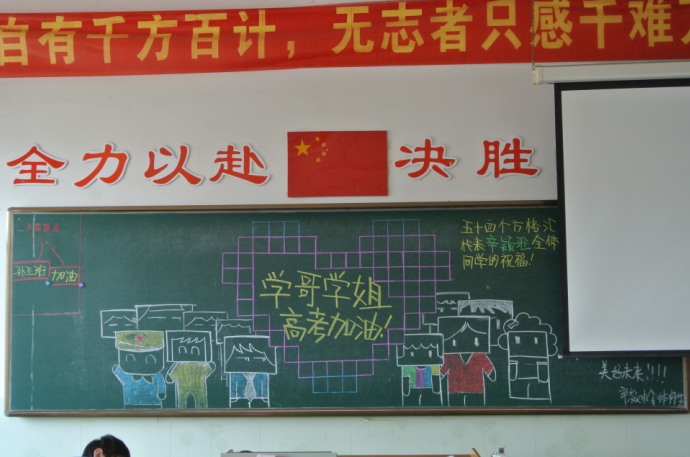 自有千方百计，无志者只感千难
全力以赴 决胜
五十四个方格汇
代表辛颖班全体
同学的祝福！
加油
学哥学姐
高考加油！